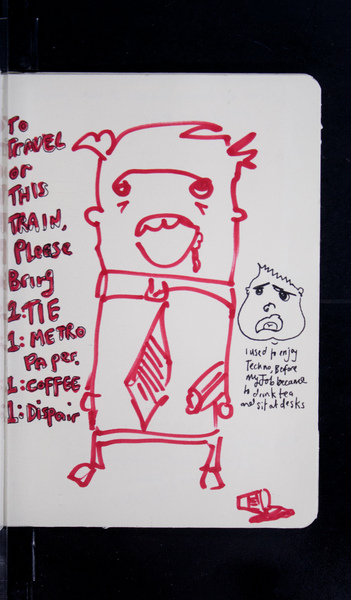 To
TRAVEL
or
THIS
TRAIN,
Please
Bring
1: TIE
1: METRO
Paper.
1: COFFEE
1: Dispair
I used to enjoy
Techno, Before
My Job became
to drink tea
and sit at desks